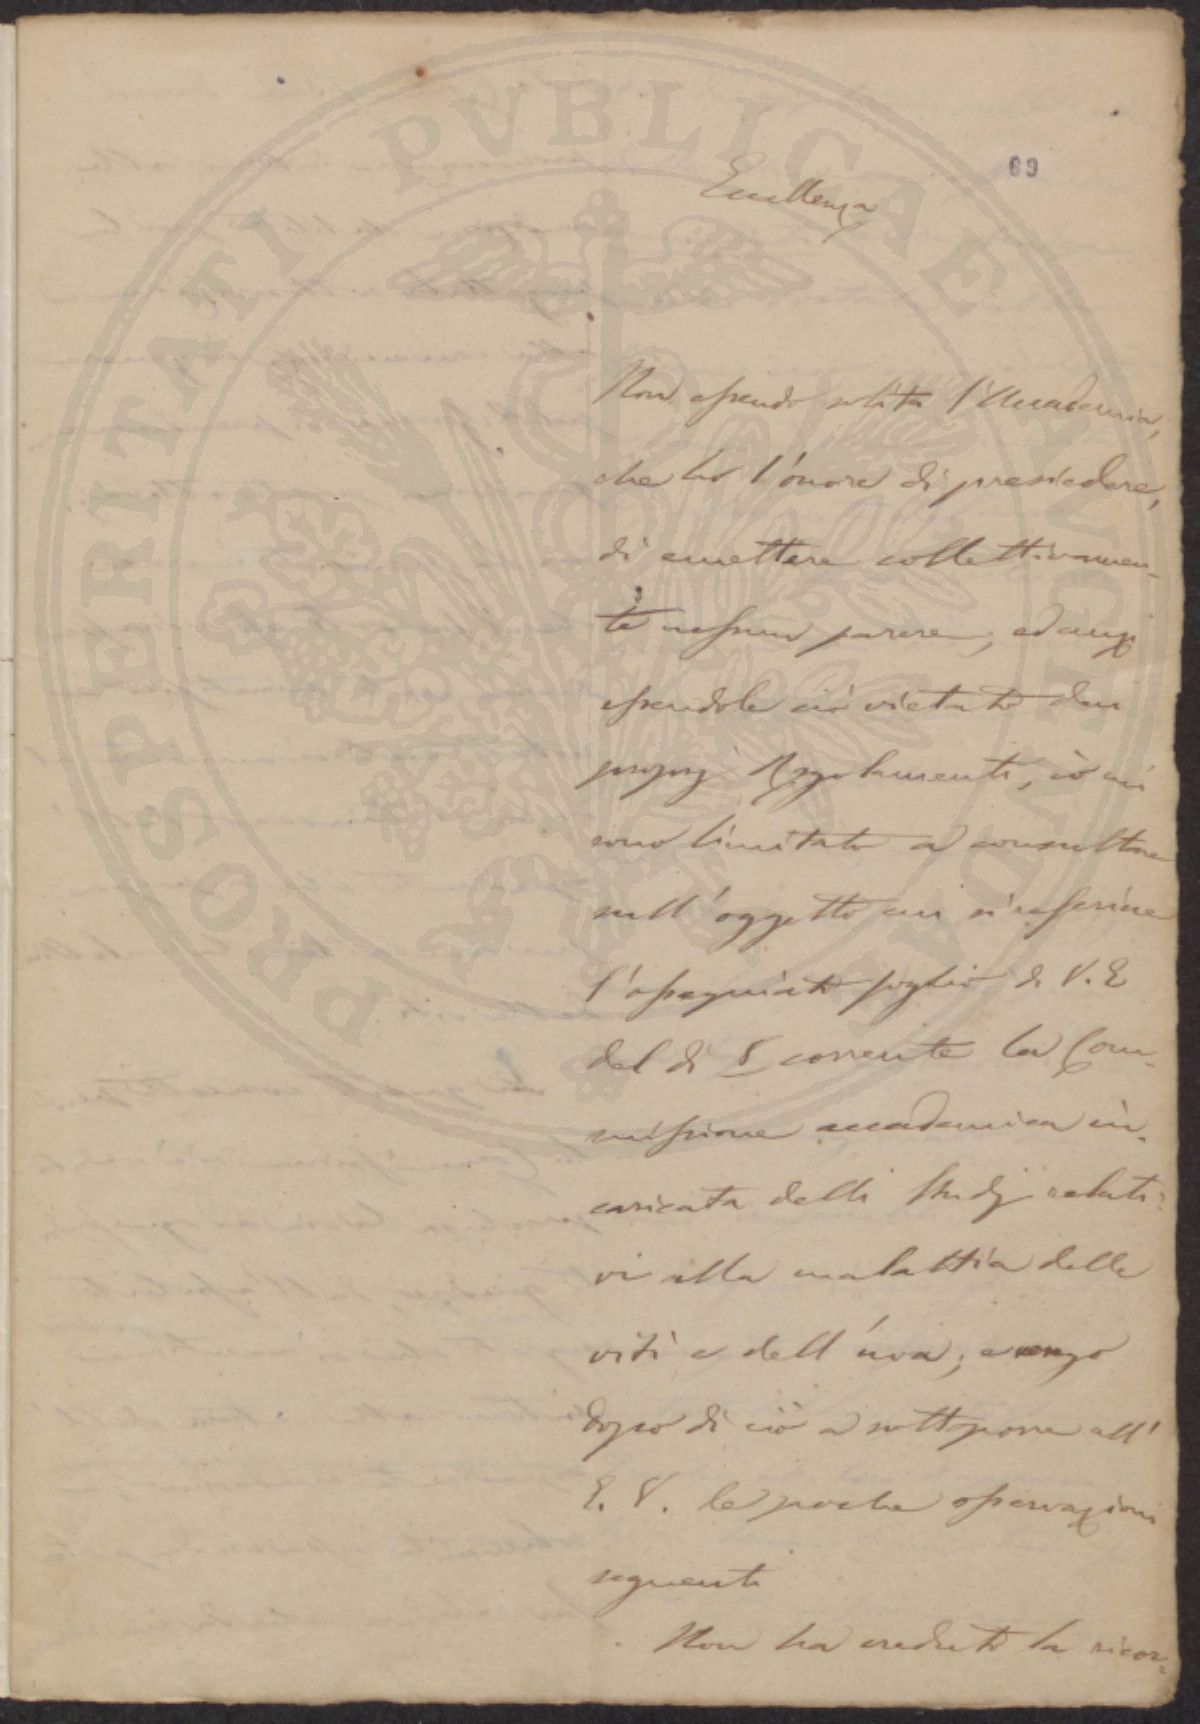 PROSPERITATI PUBLICAE AUGENDAE
69
Eccellenza
Non essendo solita l'Accademia,
che ho l'onore di presiedere,
di emettere collettivamen-
te nessun parere, ed anzi
essendole ciò vietato dai
proprj Regolamenti, io mi
sono limitato a consultare
sull'oggetto cui si riferisce
l'ossequiato foglio di V. E
del dì 8 corrente la Com-
missione accademica in-
caricata delli Studj relati-
vi alla malattia delle
viti e dell'uva; e vengo
dopo di ciò a sottoporre all'
E. V. le poche osservazioni
seguenti
Non ha creduto la ricor-